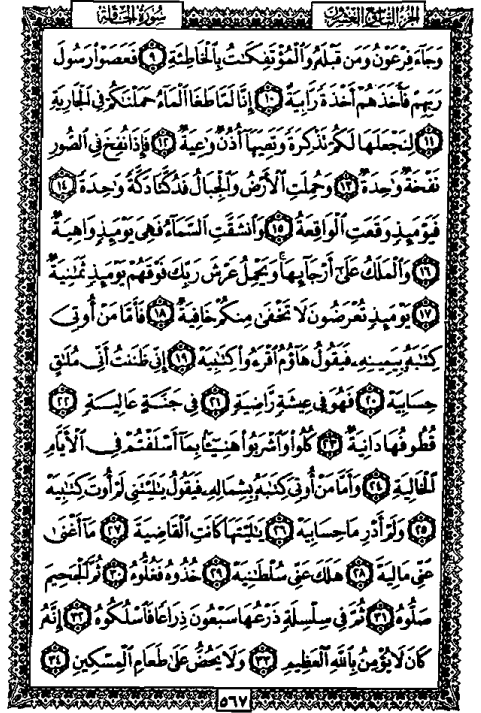 سُورَةُ الحَاقَّةِ الجُزءُ التَّاسِعُ وَالعِشْرُونَ
وَجَآءَ فِرْعَوْنُ وَمَن قَبْلَهُۥ وَٱلْمُؤْتَفِكَٰتُ بِٱلْخَاطِئَةِ ٩ فَعَصَوْا۟ رَسُولَ
رَبِّهِمْ فَأَخَذَهُمْ أَخْذَةً رَّابِيَةً ١٠ إِنَّا لَمَّا طَغَا ٱلْمَآءُ حَمَلْنَٰكُمْ فِى ٱلْجَارِيَةِ
١١ لِنَجْعَلَهَا لَكُمْ تَذْكِرَةً وَتَعِيَهَآ أُذُنٌ وَٰعِيَةٌ ١٢ فَإِذَا نُفِخَ فِى ٱلصُّورِ
نَفْخَةٌ وَٰحِدَةٌ ١٣ وَحُمِلَتِ ٱلْأَرْضُ وَٱلْجِبَالُ فَدُكَّتَا دَكَّةً وَٰحِدَةً ١٤
فَيَوْمَئِذٍ وَقَعَتِ ٱلْوَاقِعَةُ ١٥ وَٱنشَقَّتِ ٱلسَّمَآءُ فَهِىَ يَوْمَئِذٍ وَاهِيَةٌ
١٦ وَٱلْمَلَكُ عَلَىٰٓ أَرْجَآئِهَا ۚ وَيَحْمِلُ عَرْشَ رَبِّكَ فَوْقَهُمْ يَوْمَئِذٍ ثَمَٰنِيَةٌ
١٧ يَوْمَئِذٍ تُعْرَضُونَ لَا تَخْفَىٰ مِنكُمْ خَافِيَةٌ ١٨ فَأَمَّا مَنْ أُوتِىَ
كِتَٰبَهُۥ بِيَمِينِهِۦ فَيَقُولُ هَآؤُمُ ٱقْرَءُوا۟ كِتَٰبِيَهْ ١٩ إِنِّى ظَنَنتُ أَنِّى مُلَٰقٍ
حِسَابِيَهْ ٢٠ فَهُوَ فِى عِيشَةٍ رَّاضِيَةٍ ٢١ فِى جَنَّةٍ عَالِيَةٍ ٢٢
قُطُوفُهَا دَانِيَةٌ ٢٣ كُلُوا۟ وَٱشْرَبُوا۟ هَنِيٓـًٔۢا بِمَآ أَسْلَفْتُمْ فِى ٱلْأَيَّامِ
ٱلْخَالِيَةِ ٢٤ وَأَمَّا مَنْ أُوتِىَ كِتَٰبَهُۥ بِشِمَالِهِۦ فَيَقُولُ يَٰلَيْتَنِى لَمْ أُوتَ كِتَٰبِيَهْ
٢٥ وَلَمْ أَدْرِ مَا حِسَابِيَهْ ٢٦ يَٰلَيْتَهَا كَانَتِ ٱلْقَاضِيَةَ ٢٧ مَآ أَغْنَىٰ
عَنِّى مَالِيَهْ ٢٨ هَلَكَ عَنِّى سُلْطَٰنِيَهْ ٢٩ خُذُوهُ فَغُلُّوهُ ٣٠ ثُمَّ ٱلْجَحِيمَ
صَلُّوهُ ٣١ ثُمَّ فِى سِلْسِلَةٍ ذَرْعُهَا سَبْعُونَ ذِرَاعًا فَٱسْلُكُوهُ ٣٢ إِنَّهُۥ
كَانَ لَا يُؤْمِنُ بِٱللَّهِ ٱلْعَظِيمِ ٣٣ وَلَا يَحُضُّ عَلَىٰ طَعَامِ ٱلْمِسْكِينِ ٣٤
٥٦٧